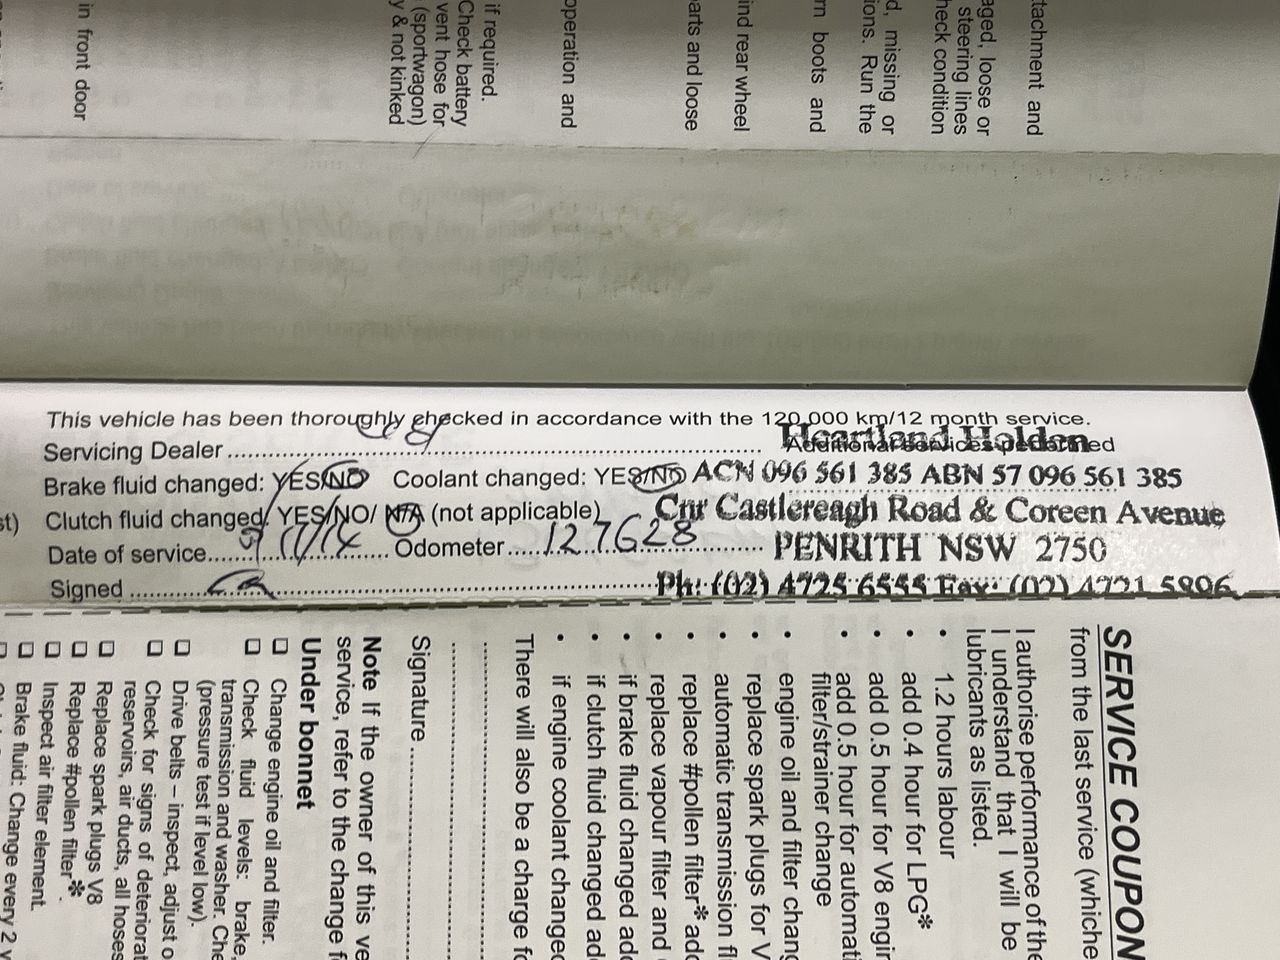 in front door
if required.
Check battery
vent hose for
(sportwagon)
y & not kinked
operation and
parts and loose
ind rear wheel
rn boots and
d, missing or
ions. Run the
aged, loose or
steering lines
heck condition
tachment and
This vehicle has been thoroughly checked in accordance with the 120,000 km/12 month service.
Servicing Dealer
Additional services performed
Heartland Holden
Brake fluid changed: YES/NO Coolant changed: YES/NO
ACN 096 561 385 ABN 57 096 561 385
st) Clutch fluid changed: YES/NO/ N/A (not applicable)
Cnr Castlereagh Road & Coreen Avenue
Date of service Odometer 127628
PENRITH NSW 2750
Signed
Ph: (02) 4725 6555 Fax: (02) 4721 5806
SERVICE COUPON
from the last service (whiche
I authorise performance of the
I understand that I will be
lubricants as listed.
• 1.2 hours labour
• add 0.4 hour for LPG*
• add 0.5 hour for V8 engin
• add 0.5 hour for automati
filter/strainer change
• engine oil and filter chang
• replace spark plugs for V
• automatic transmission fl
• replace #pollen filter* add
• replace vapour filter and
• if brake fluid changed add
• if clutch fluid changed add
• if engine coolant changed
There will also be a charge fo
Signature
Note If the owner of this ve
service, refer to the change f
Under bonnet
☐ Change engine oil and filter.
☐ Check fluid levels: brake,
transmission and washer. Che
(pressure test if level low).
☐ Drive belts – inspect, adjust o
☐ Check for signs of deteriorat
reservoirs, air ducts, all hoses
☐ Replace spark plugs V8
☐ Replace #pollen filter*.
☐ Inspect air filter element.
☐ Brake fluid: Change every 2 y